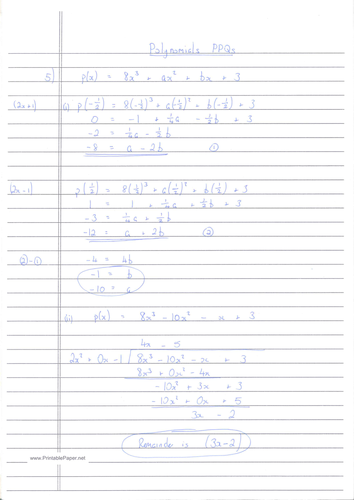 Polynomials PPQs
5) p(x) = 8x³ + ax² + bx + 3
(2x+1) (i) p(-½) = 8(-½)³ + a(-½)² + b(-½) + 3
0 = -1 + ¼a - ½b + 3
-2 = ¼a - ½b
-8 = a - 2b ①
(2x-1) p(½) = 8(½)³ + a(½)² + b(½) + 3
1 = 1 + ¼a + ½b + 3
-3 = ¼a + ½b
-12 = a + 2b ②
②-① -4 = 4b
-1 = b
-10 = a
(ii) p(x) = 8x³ - 10x² - x + 3
4x - 5
2x² + 0x - 1 8x³ - 10x² - x + 3
8x³ + 0x² - 4x
-10x² + 3x + 3
-10x² + 0x + 5
3x - 2
Remainder is (3x-2)
www.PrintablePaper.net